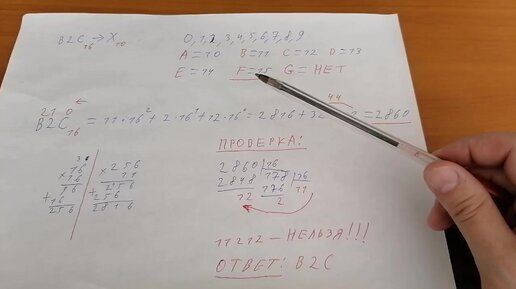 B2C₁₆ → X₁₀
0,1,2,3,4,5,6,7,8,9
A=10 B=11 C=12 D=13
E=14 F=15 G=НЕТ
2 1 0 ←
44
B2C₁₆ = 11·16² + 2·16¹ + 12·16⁰ = 2816 + 32 = 2860
3
16
×16
96
+16
256
×256
11
256
+256
2816
ПРОВЕРКА:
2860 |16
2848 178 |16
12 176 11
2
11212 – НЕЛЬЗЯ!!!
ОТВЕТ: B2C